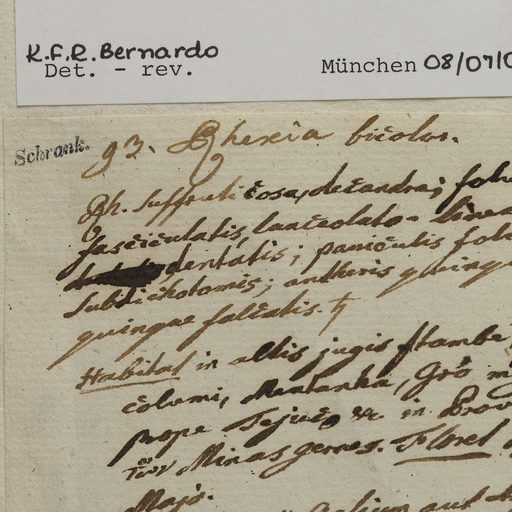 K.F.R. Bernardo
Det. - rev. München 08/07/0
Schrank.
93. Rhexia bicolor.
Rh. suffruticosa, decandra; foli
fasciculatis, lanceolato-linea
dentatis; paniculis foli
subdichotomis; antheris quinq
quinque falcatis. ♄
Habitat in altis jugis Itambe,
columi, Mentanha, Gró m
prope Tejuco &c. in Prov
Minas geraes. Floret
Majo.